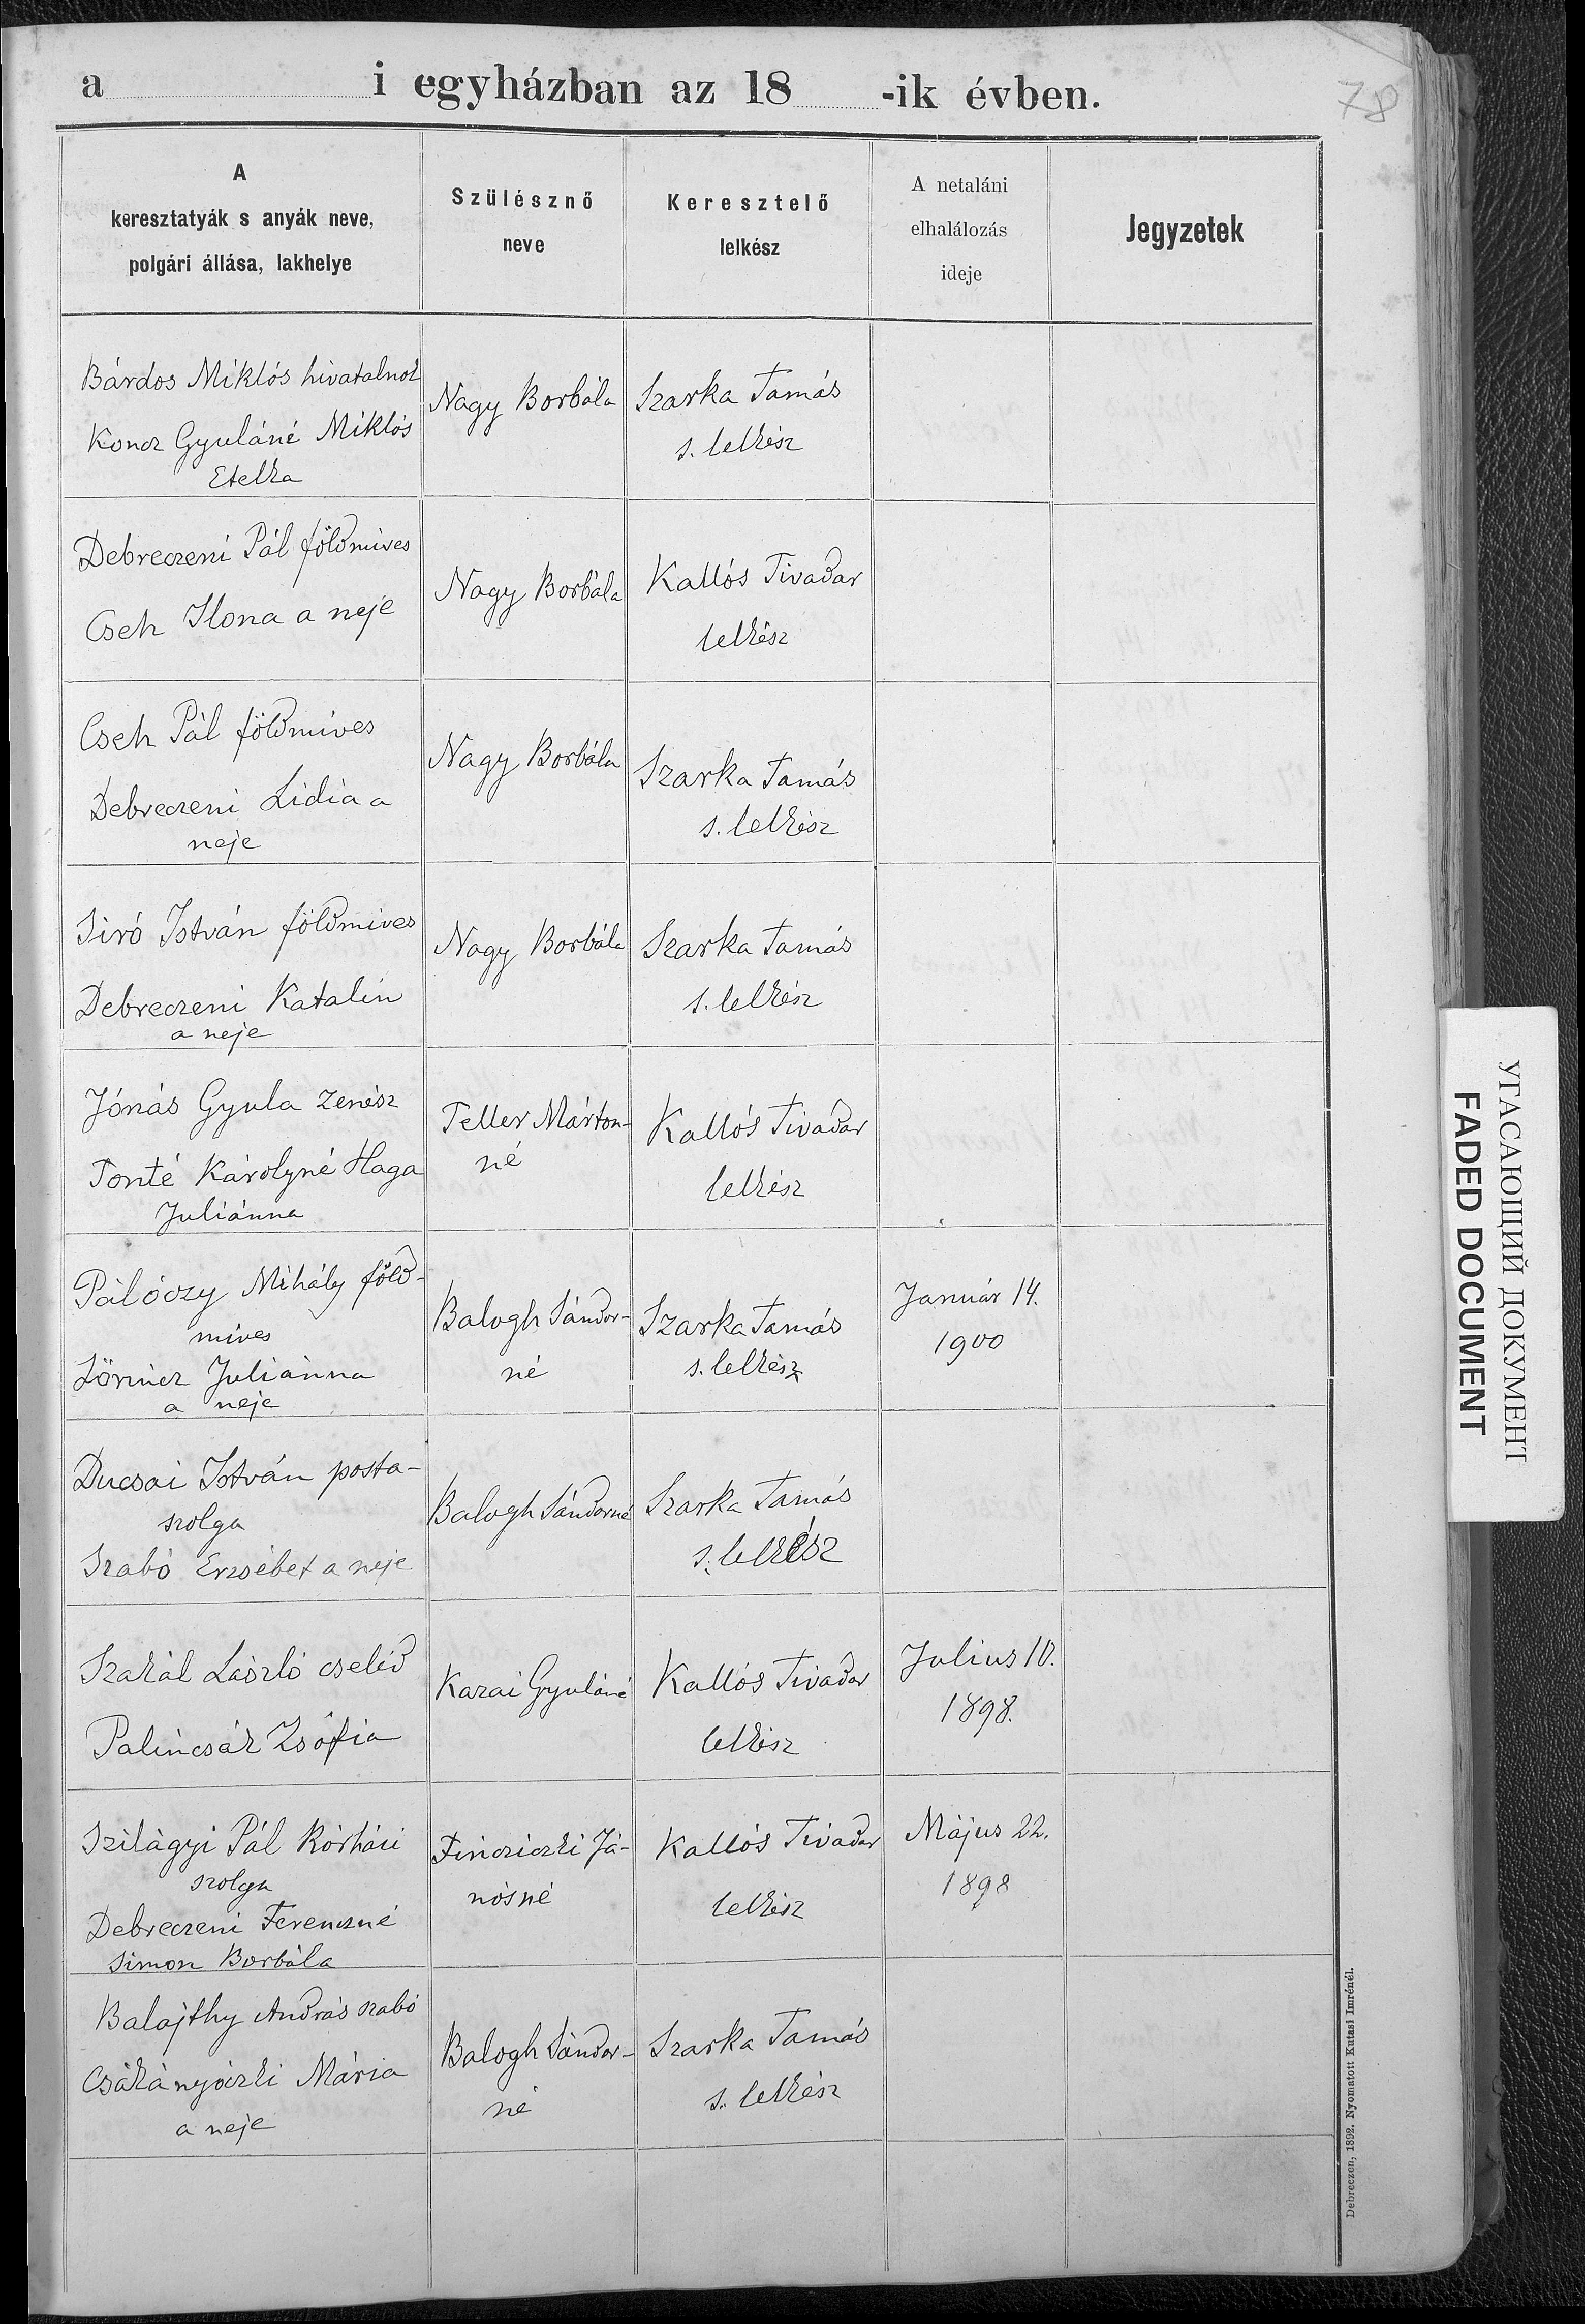 a i egyházban az 18 -ik évben.
78
A
keresztatyák s anyák neve,
polgári állása, lakhelye
Szülésznő
neve
Keresztelő
lelkész
A netaláni
elhalálozás
ideje
Jegyzetek
Bárdos Miklós hivatalnok
Koncz Gyuláné Miklós
Etelka
Nagy Borbála
Szarka Tamás
s. lelkész
Debreczeni Pál földmives
Cseh Ilona a neje
Nagy Borbála
Kallós Tivadar
lelkész
Cseh Pál földmíves
Debreczeni Lidia a
neje
Nagy Borbála
Szarka Tamás
s. lelkész
Siró István földmives
Debreczeni Katalin
a neje
Nagy Borbála
Szarka Tamás
s. lelkész
Jónás Gyula zenész
Tonté Károlyné Haga
Juliánna
Teller Márton-
né
Kallós Tivadar
lelkész
Pálóczy Mihály föld-
mives
Lörincz Juliánna
a neje
Balogh Sándor-
né
Szarka Tamás
s. lelkész
Január 14.
1900
Ducsai István posta-
szolga
Szabó Erzsébet a neje
Balogh Sándorné
Szarka Tamás
s. lelkész
Szakál László cseléd
Palincsák Zsófia
Kazai Gyuláné
Kallós Tivadar
lelkész
Julius 10.
1898.
Szilágyi Pál kórházi
szolga
Debreczeni Ferenczné
Simon Borbála
Fincziczki Já-
nósné
Kallós Tivadar
lelkész
Május 22.
1898
Balajthy András szabó
Csákányóczki Mária
a neje
Balogh Sándor-
né
Szarka Tamás
s. lelkész
Debreczen, 1892. Nyomatott Kutasi Imrénél.
УГАСАЮЩИЙ ДОКУМЕНТ
FADED DOCUMENT